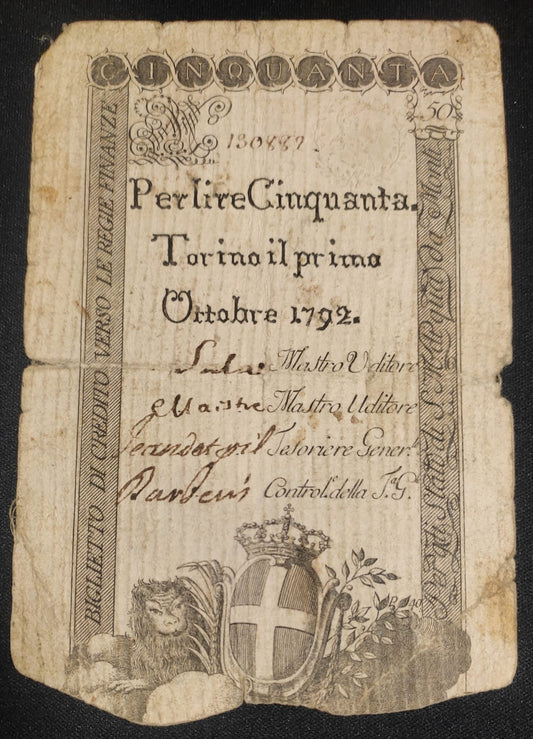 CINQUANTA
50
130887
Per lire Cinquanta.
Torino il primo
Ottobre 1792.
Mastro Uditore
Mastro Uditore
Tesoriere Gener.
Control. della T.G.
BIGLIETTO DI CREDITO VERSO LE REGIE FINANZE
Per gli Stati di S. M. di quà da Monti